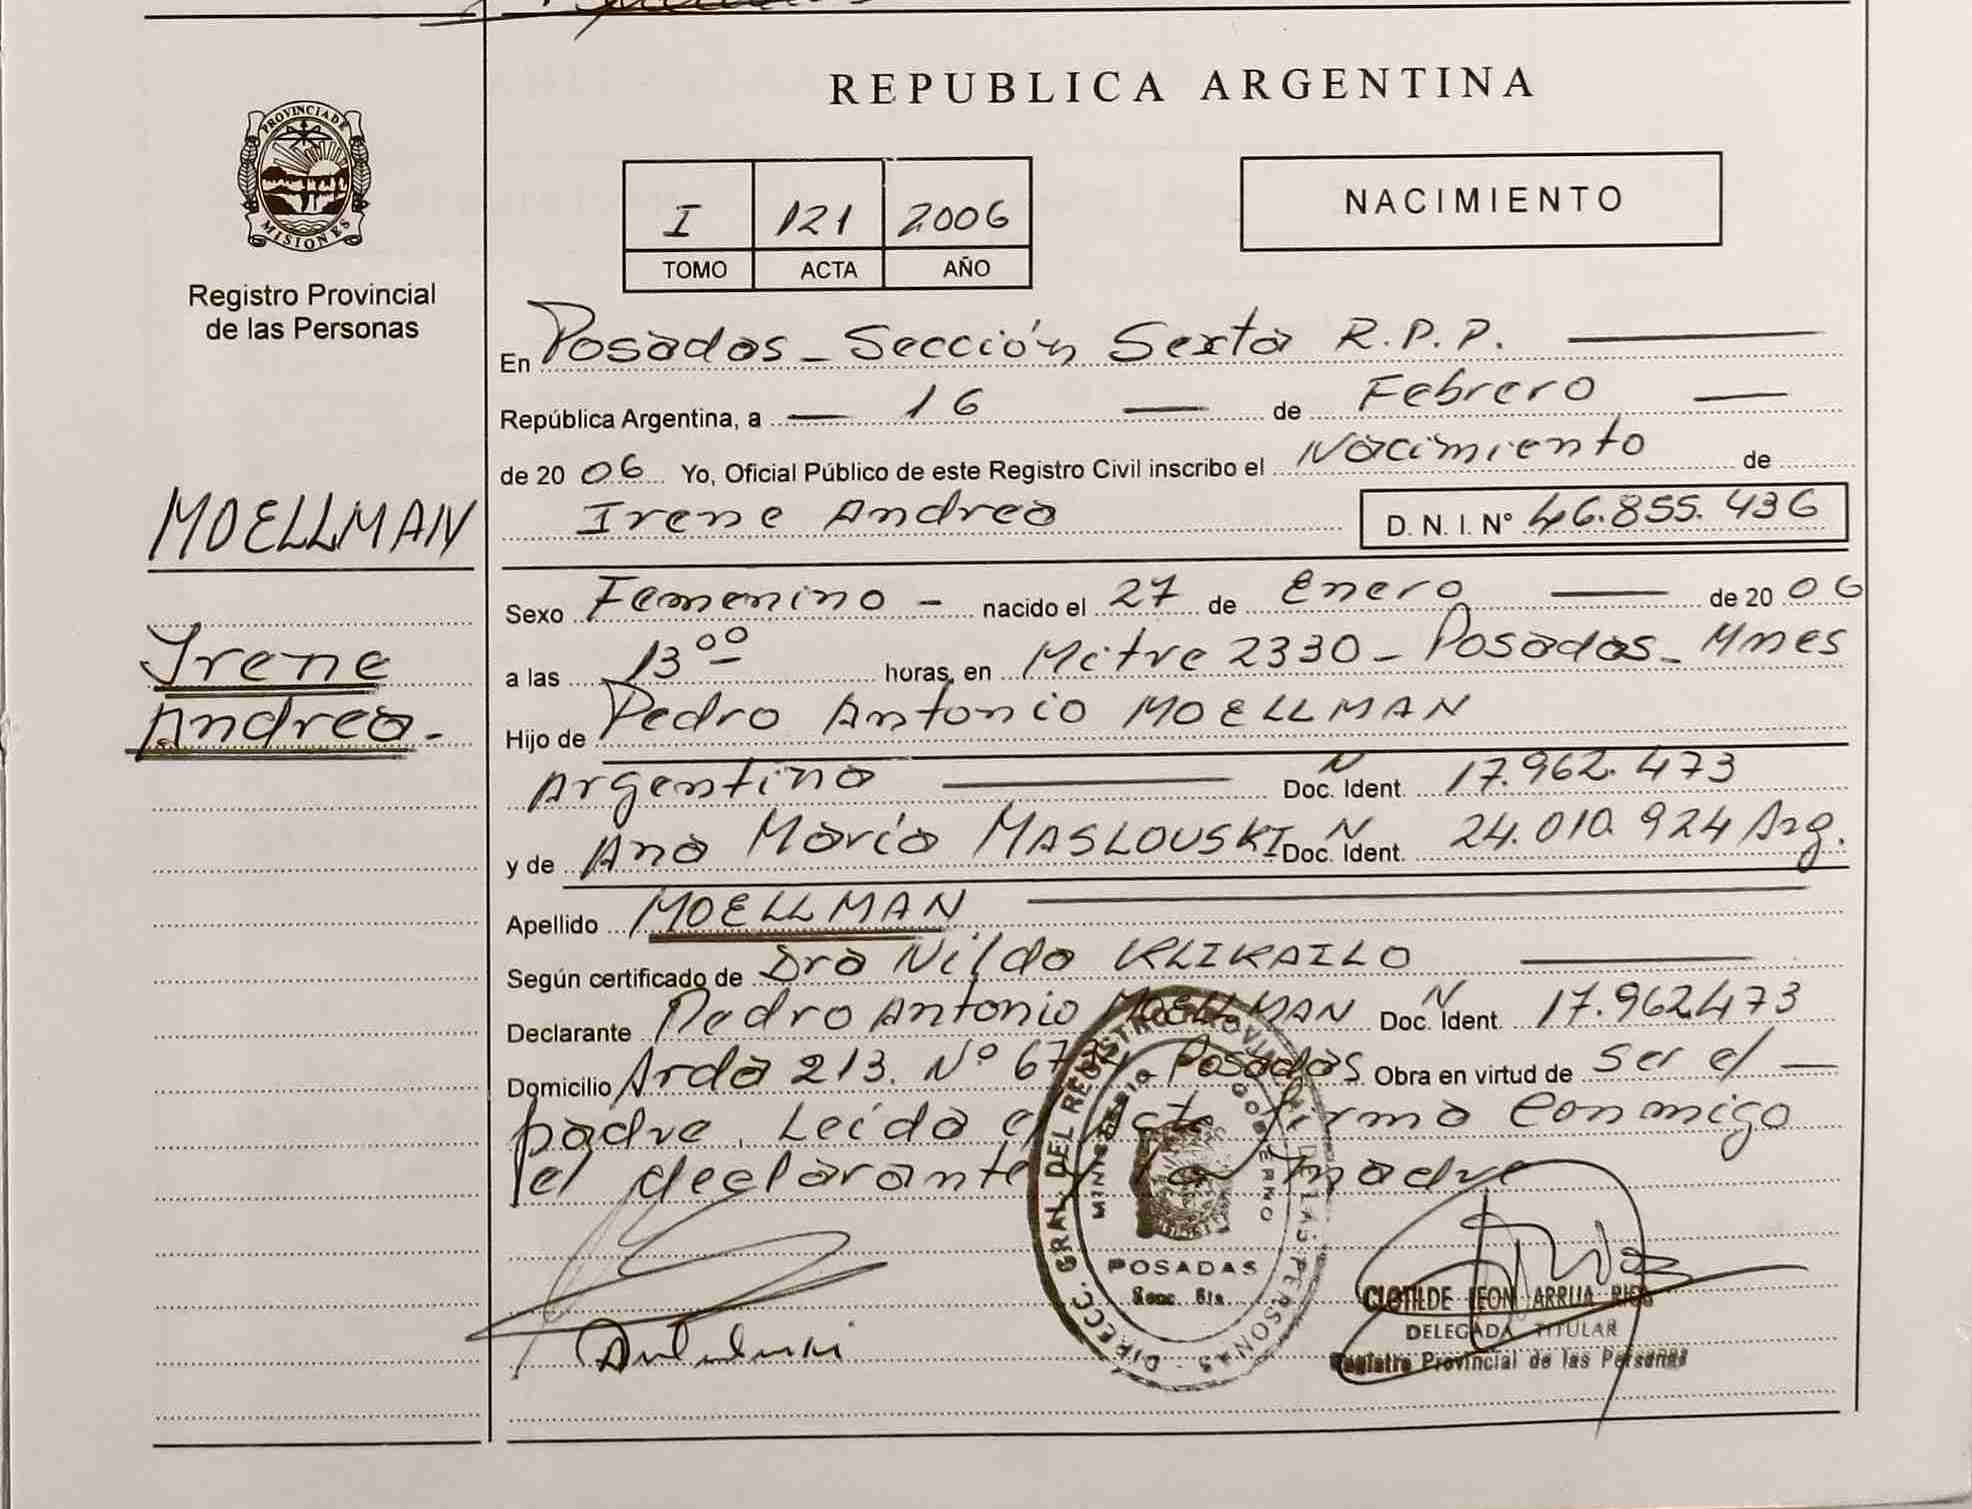 REPUBLICA ARGENTINA
PROVINCIA DE MISIONES
Registro Provincial
de las Personas
I 121 2006
TOMO ACTA AÑO
NACIMIENTO
En Posadas - Sección Sexta R.P.P.
República Argentina, a 16 de Febrero
de 20 06 Yo, Oficial Público de este Registro Civil inscribo el Nacimiento de
Irene Andrea D. N. I. N° 46.855.436
MOELLMAN
Irene
Andrea.-
Sexo Femenino - nacido el 27 de Enero de 20 06
a las 13 00 horas, en Mitre 2330 - Posadas - Mnes
Hijo de Pedro Antonio MOELLMAN
Argentino Doc. N Ident. 17.962.473
y de Ana María MASLOUSKI Doc. N Ident. 24.010.924 Arg.
Apellido MOELLMAN
Según certificado de Dra Nilda KLIKAILO
Declarante Pedro Antonio MOELLMAN Doc. N Ident. 17.962473
Domicilio Arda 213. Nº Posadas Obra en virtud de ser el
padre. Leída el Acta firma conmigo
el declarante y la madre
DIRECC. GRAL. DEL REGISTRO PROVINCIAL DE LAS PERSONAS
MINISTERIO GOBIERNO
POSADAS
Secc. 6ta.
CLOTILDE LEON ARRUA RIOS
DELEGADA TITULAR
Registro Provincial de las Personas